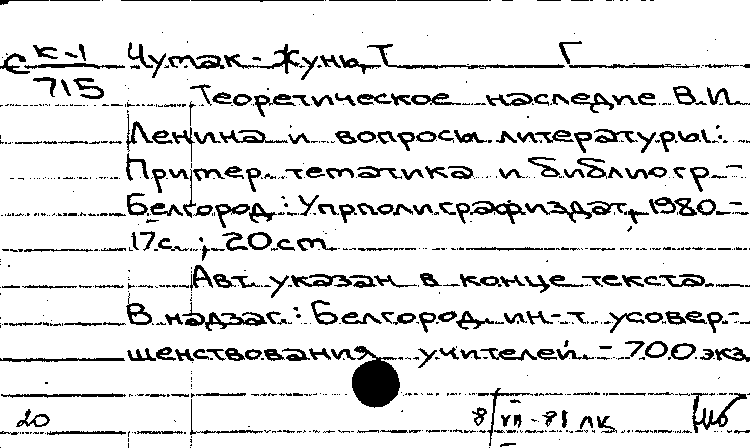 С К-1 Чумак-Жунь, Т Г
715
Теоретическое наследие В.И.
Ленина и вопросы литературы:
Пример. тематика и библиогр.-
Белгород: Упрполиграфиздат, 1980.-
17с.; 20cm
Авт. указан в конце текста
В надзаг.: Белгород. ин-т усовер-
шенствования учителей. - 700 экз.
20 8/VII-81 ЛК